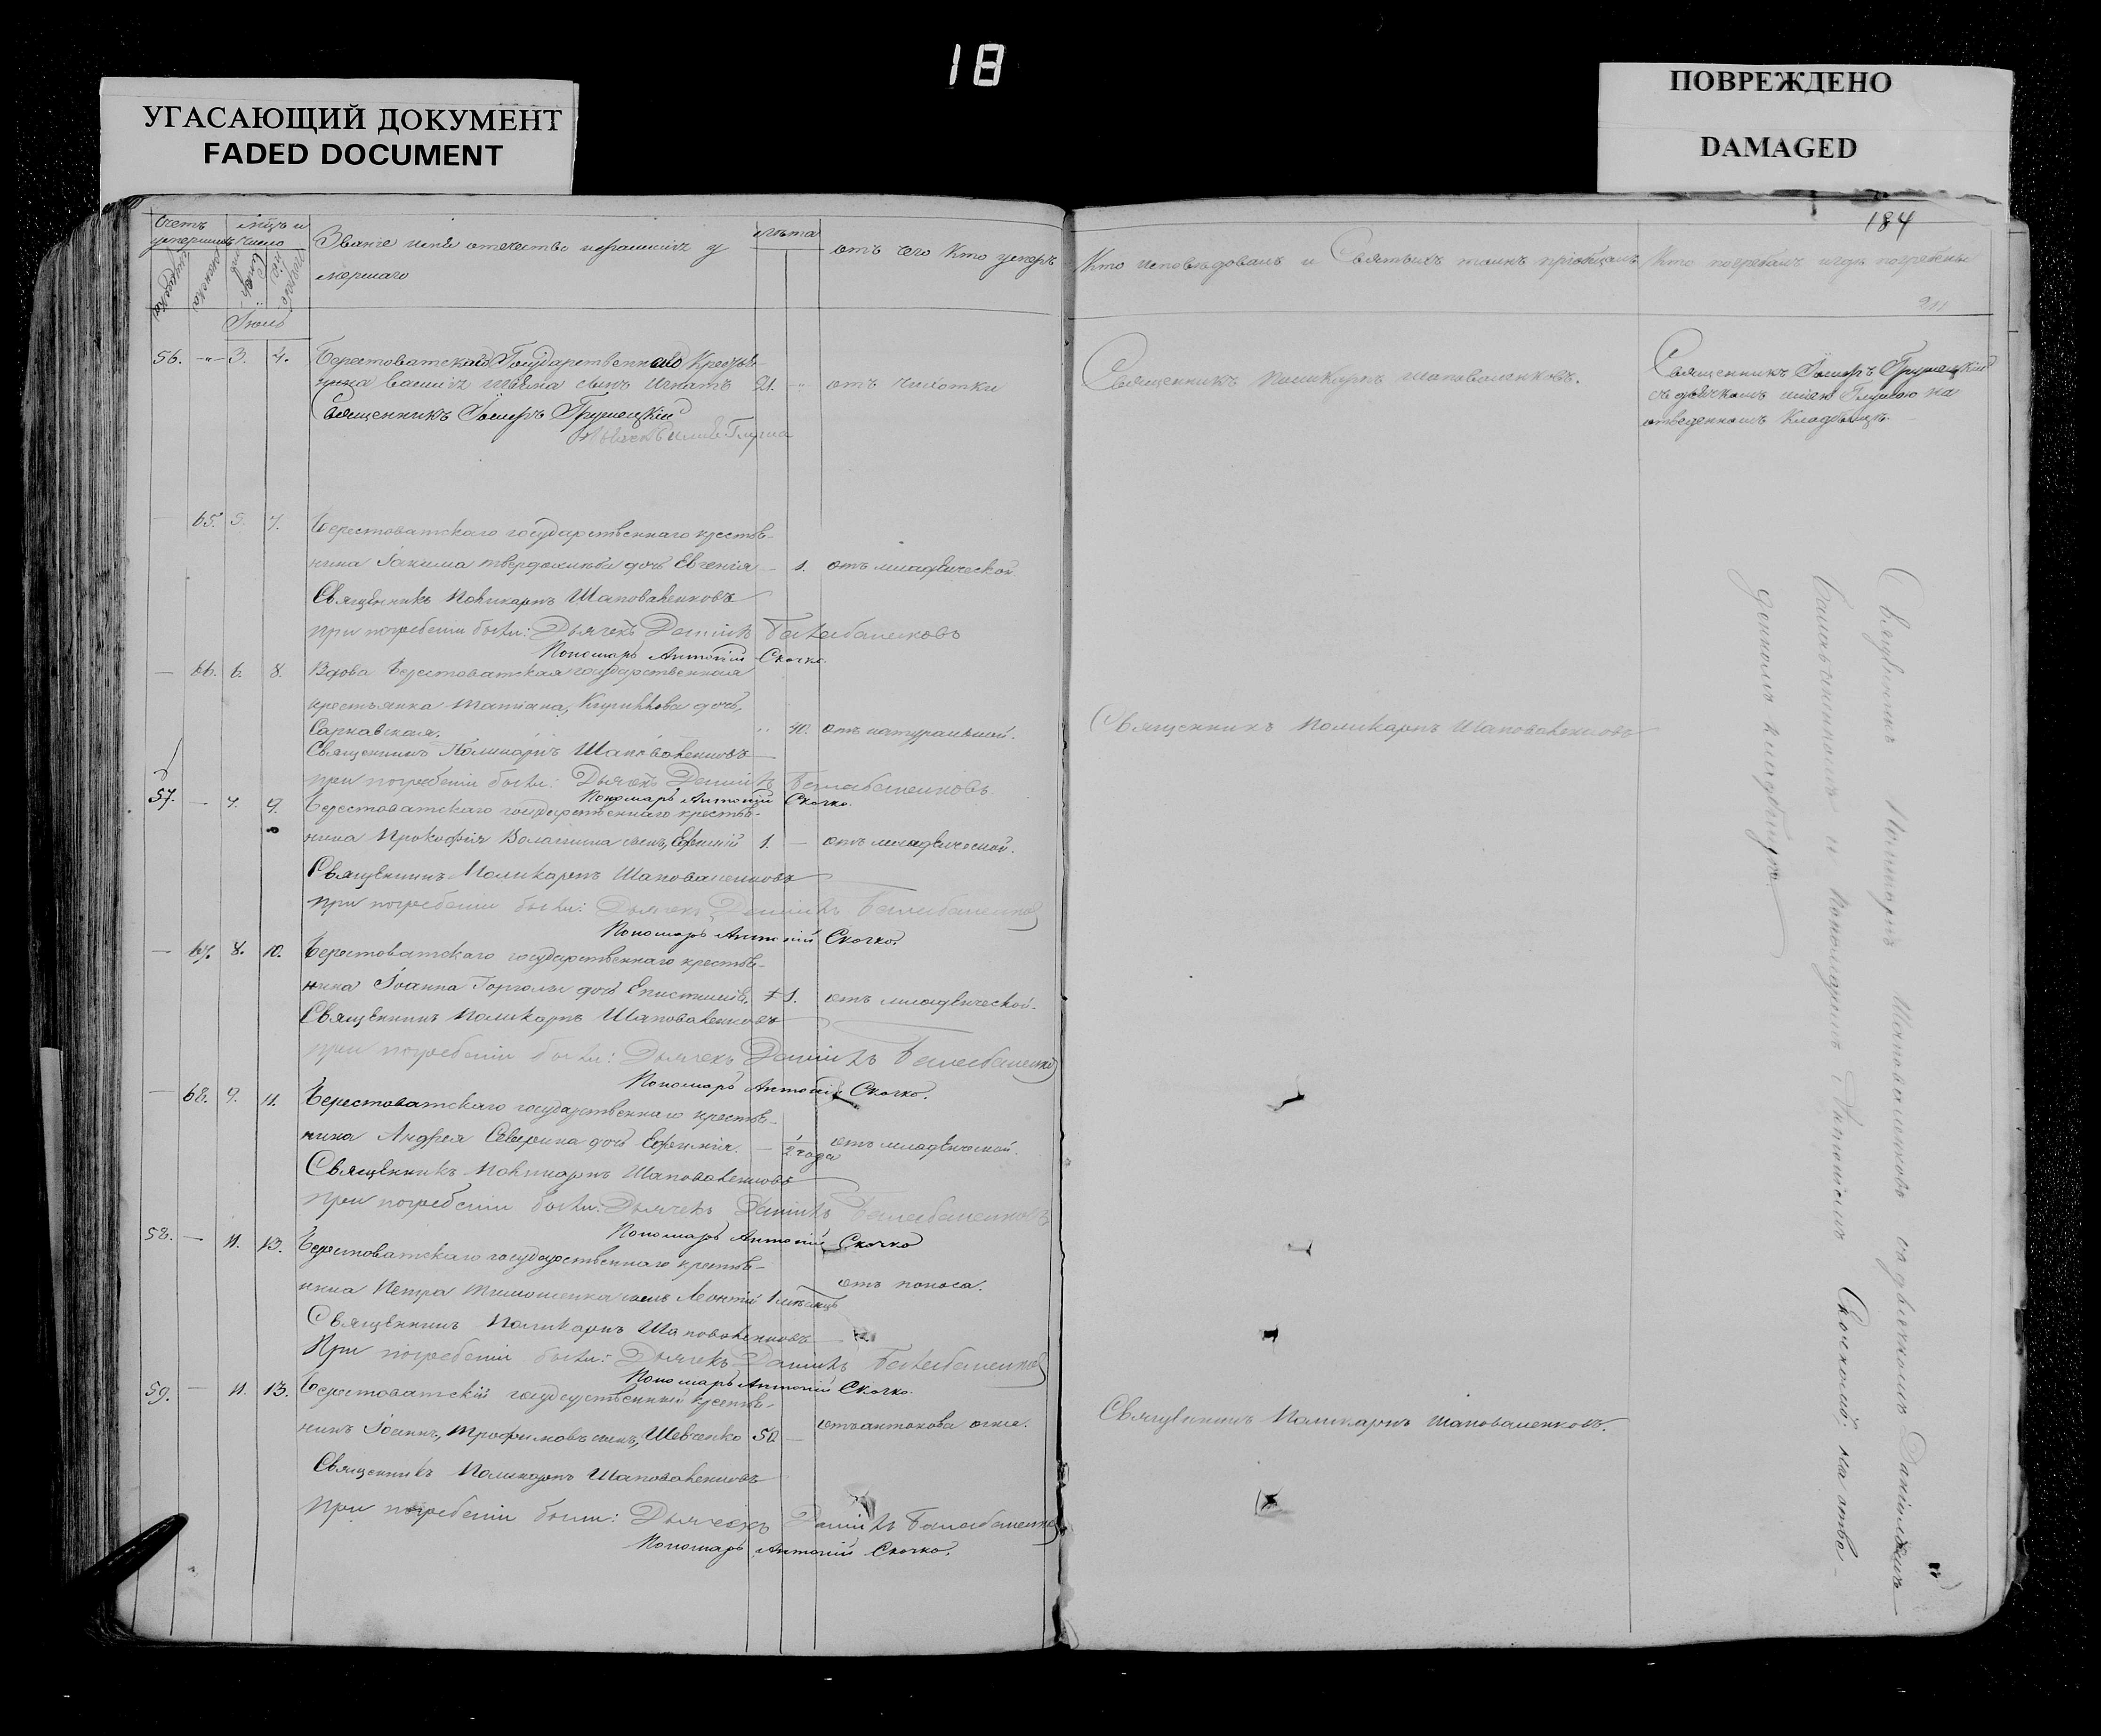 18
УГАСАЮЩИЙ ДОКУМЕНТ
FADED DOCUMENT
ПОВРЕЖДЕНО
DAMAGED
184
Счетъ умершихъ
число
Званіе имя отечество и фамилія у
мершаго
лѣта
отъ чего кто умеръ
Кто исповѣдовалъ и Святыхъ таинъ пріобщалъ
Кто погребалъ и гдѣ погребены
Іюль
56. 3. 4. Берестоватскаго Государственнаго Крестья
нина сынъ Игнатъ 21. отъ чихотки
Священникъ Іосифъ Грушецкій
Священникъ Поликарпъ Шаповаленковъ.
Священникъ Іосифъ Грушецкій
съ дьячкомъ на
отведенномъ Кладбищѣ.
65. 5. 7. Берестоватскаго государственнаго крестья-
нина Іакима дочь Евгенія 1. отъ младенческой
Священникъ Поликарпъ Шаповаленковъ
при погребеніи были: Дьячекъ Даніилъ Балабаненковъ
Пономарь Антоній Скочко.
66. 6. 8. Вдова Берестоватская государственная
крестьянка Татіана, Кириллова дочь,
Сарнавская. 40. отъ натуральной.
Священникъ Поликарпъ Шаповаленковъ
при погребеніи были: Дьячекъ Даніилъ Балабаненковъ
Пономарь Антоній Скочко.
Священникъ Поликарпъ Шаповаленковъ
57. 7. 9. Берестоватскаго государственнаго крестья-
нина Прокофія сынъ, 1. отъ младенческой.
Священникъ Поликарпъ Шаповаленковъ
при погребеніи были: Дьячекъ Даніилъ Балабаненковъ
Пономарь Антоній Скочко.
67. 8. 10. Берестоватскаго государственнаго крестья-
нина Іоанна дочь 1. отъ младенческой.
Священникъ Поликарпъ Шаповаленковъ
при погребеніи были: Дьячекъ Даніилъ Балабаненко
Пономарь Антоній Скочко.
68. 9. 11. Берестоватскаго государственнаго крестья-
нина Андрея Северина дочь Ефимія. 1/2 года отъ младенческой.
Священникъ Поликарпъ Шаповаленковъ
при погребеніи были: Дьячекъ Даніилъ Балабаненковъ
Пономарь Антоній Скочко
58. 11. 13. Берестоватскаго государственнаго крестья-
нина Петра Тимошенка сынъ Леонтій 1 мѣсяцъ отъ поноса.
Священникъ Поликарпъ Шаповаленковъ
При погребеніи были: Дьячекъ Даніилъ Балабаненковъ
Пономарь Антоній Скочко.
59. 11. 13. Берестоватскій государственный крестья-
нинъ Іоаннъ, Трофимовъ сынъ, Шевченко 50 отъ антонова огня.
Священникъ Поликарпъ Шаповаленковъ
при погребеніи были: Дьячекъ Даніилъ Балабаненко
Пономарь Антоній Скочко.
Священникъ Поликарпъ Шаповаленковъ.
Священникъ Поликарпъ Шаповаленковъ съ дьячкомъ Даніиломъ
Балабаненкомъ и Пономаремъ Антоніемъ Скочкомъ: на отве-
денномъ кладбищѣ.